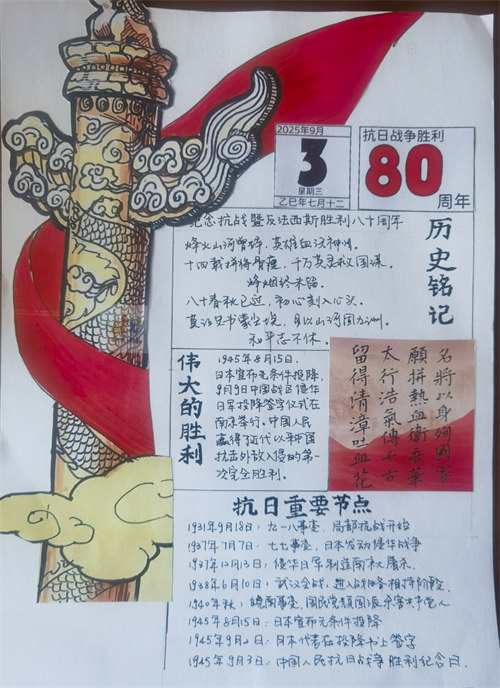 2025年9月
3
星期三
乙巳年七月十二
抗日战争胜利
80
周年
纪念抗战暨反法西斯胜利八十周年
烽火山河曾碎，英雄血沃神州。
十四载拼将骨瘦，千万英灵救国谋。
烽烟终未留。
八十春秋已过，初心刻入心头。
莫沿史书蒙尘垢，自以山河固九州。
和平志不休。
历史铭记
伟大的胜利
1945年8月15日，
日本宣布无条件投降，
9月9日中国战区侵华
日军投降签字仪式在
南京举行，中国人民
赢得了近代以来中国
抗击外敌入侵的第一
次完全胜利。
名將以身殉國家
願拼熱血衛吾華
太行浩氣傳千古
留得清漳吐血花
抗日重要节点
1931年9月18日：九一八事变，局部抗战开始
1937年7月7日：七七事变，日本发动侵华战争
1937年12月13日：侵华日军制造南京屠杀
1938年6月10日：武汉会战，进入战略相持阶段
1940年秋：皖南事变，国民党顽固派杀害共产党人
1945年8月15日：日本宣布无条件投降
1945年9月2日：日本代表在投降书上签字
1945年9月3日：中国人民抗日战争胜利纪念日